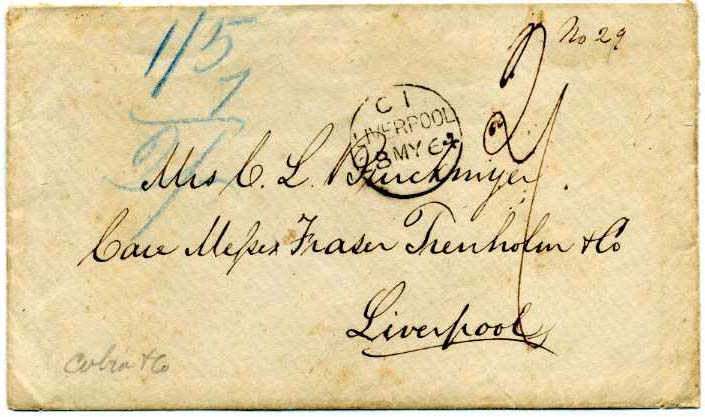 No 29
1/5
7
2/
2/
C 1
LIVERPOOL
8 MY 64
Mrs C. L. Burckmyer.
Care Messrs Fraser Trenholm & Co
Liverpool
& Co